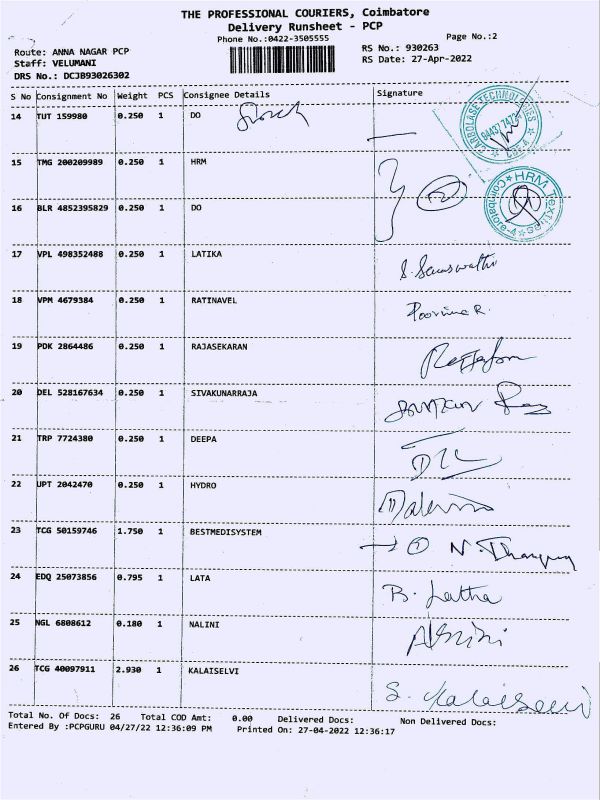 THE PROFESSIONAL COURIERS, Coimbatore
Delivery Runsheet - PCP
Phone No.:0422-3505555
Page No.:2
Route: ANNA NAGAR PCP
RS No.: 930263
Staff: VELUMANI
RS Date: 27-Apr-2022
DRS No.: DCJB93026302
S No Consignment No Weight PCS Consignee Details Signature
14 TUT 159980 0.250 1 DO
15 TMG 200209989 0.250 1 HRM
HRM Textiles
Coimbatore-4
16 BLR 4852395829 0.250 1 DO
17 VPL 498352488 0.250 1 LATIKA S. Saraswathi
18 VPM 4679384 0.250 1 RATINAVEL Poornima R.
19 PDK 2864486 0.250 1 RAJASEKARAN
20 DEL 528167634 0.250 1 SIVAKUNARRAJA
21 TRP 7724380 0.250 1 DEEPA
22 UPT 2042470 0.250 1 HYDRO
23 TCG 50159746 1.750 1 BESTMEDISYSTEM → 1
24 EDQ 25073856 0.795 1 LATA B. Latha
25 NGL 6808612 0.180 1 NALINI
26 TCG 40097911 2.930 1 KALAISELVI S. Kalaiselvi
Total No. Of Docs: 26 Total COD Amt: 0.00 Delivered Docs: Non Delivered Docs:
Entered By :PCPGURU 04/27/22 12:36:09 PM Printed On: 27-04-2022 12:36:17